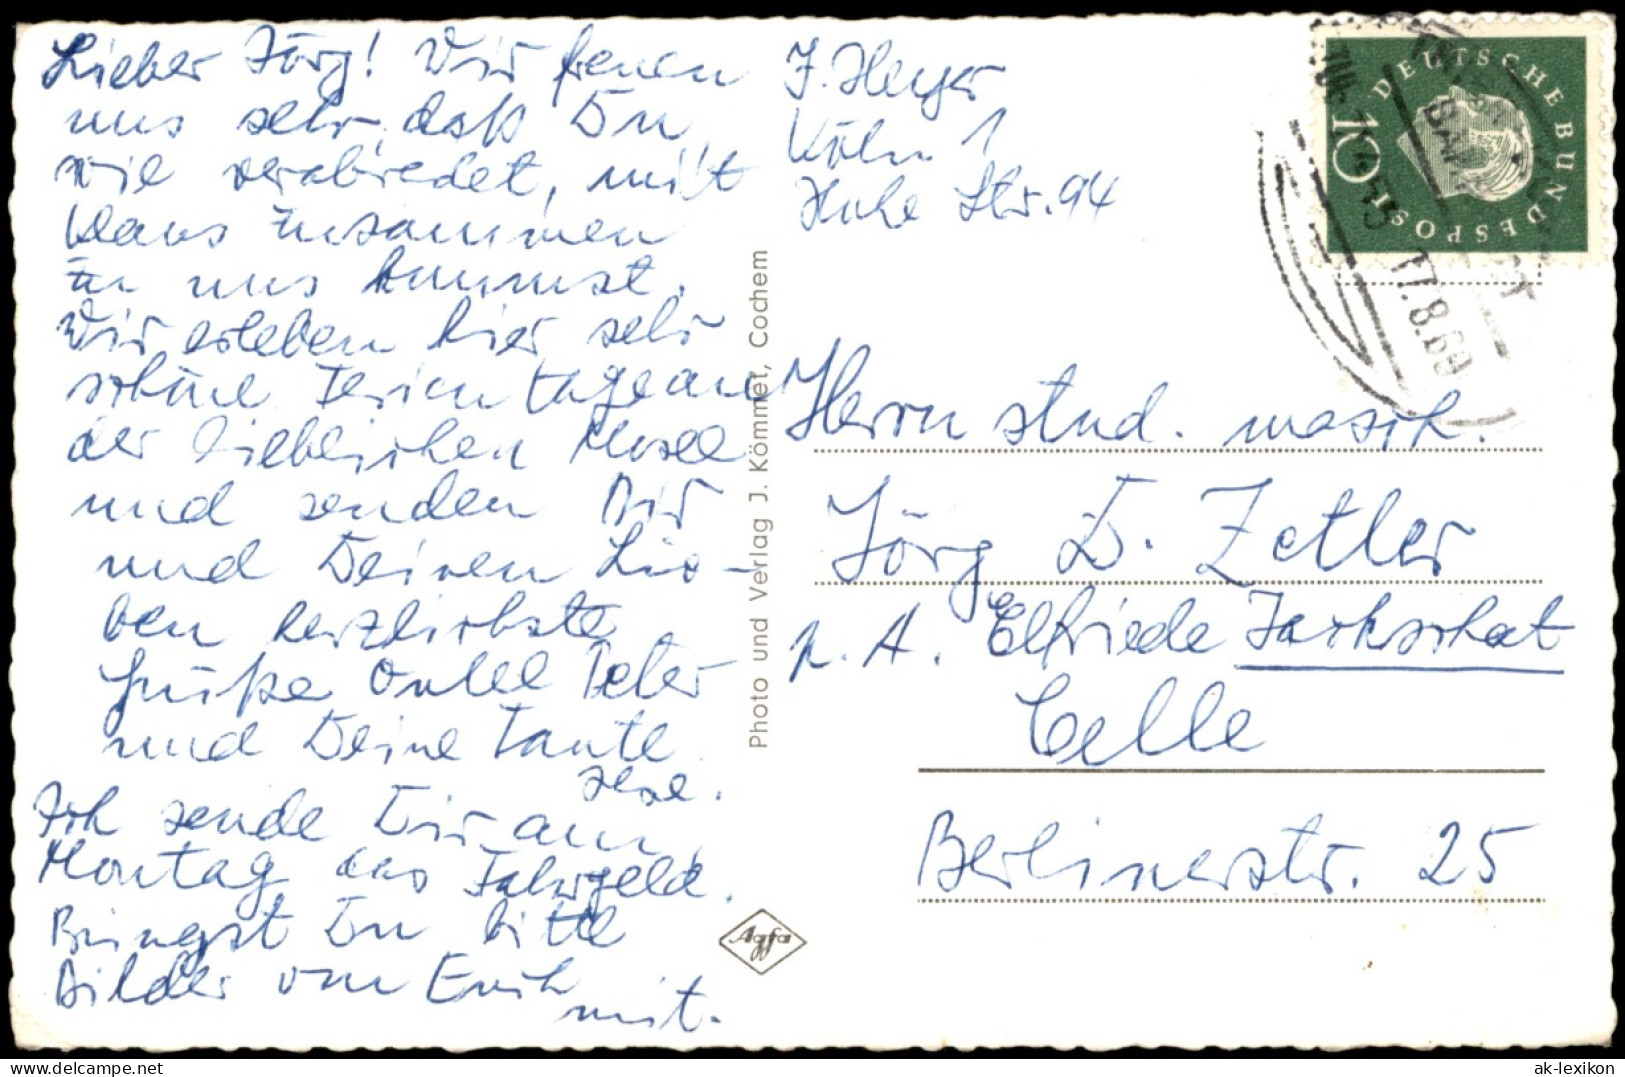 Lieber Jörg! Wir freuen
uns sehr, daß Du,
wie verabredet, mit
Klaus zusammen
zu uns kommst.
Wir erleben hier sehr
schöne Ferientage an
der lieblichen Mosel
und senden Dir
und Deinen Lie-
ben herzlichste
Grüße Onkel Peter
und Deine Tante
Ilse.
Ich sende Dir am
Montag das Fahrgeld.
Bringst Du bitte
Bilder von Erich
mit.
J. Heyer
Köln 1
Hohe Str. 94
DEUTSCHE BUNDESPOST
10
BAHNPOST
17.8.60
Herrn stud. masch.
Jörg D. Zetler
p. A. Elfriede Jackschat
Celle
Berlinerstr. 25
Photo und Verlag J. Kömmet, Cochem
Agfa
ak-lexikon